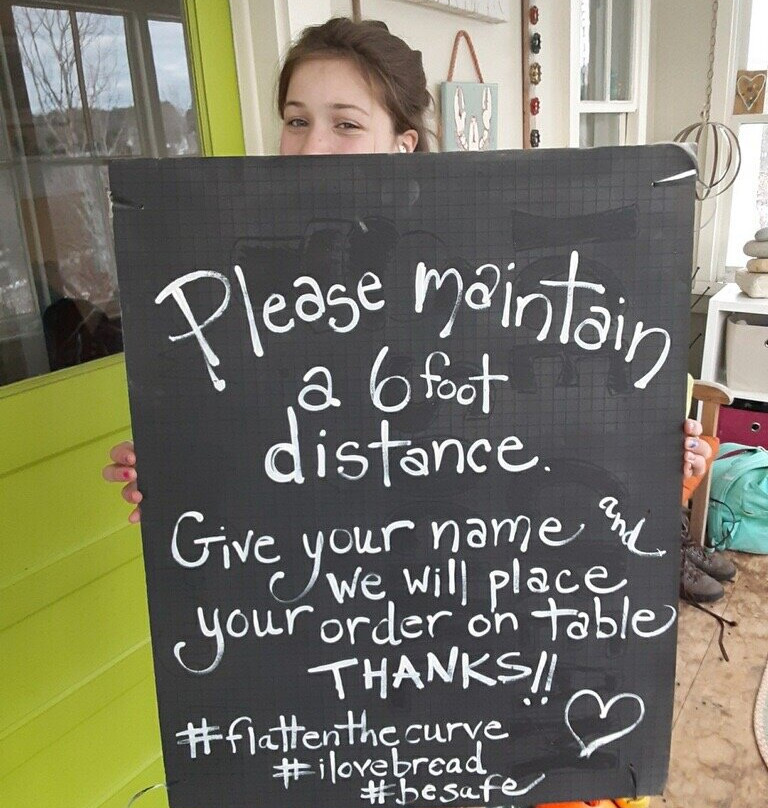 Please maintain
a 6 foot
distance.
Give your name and
we will place
your order on table
THANKS!!
#flattenthecurve
#ilovebread
#besafe